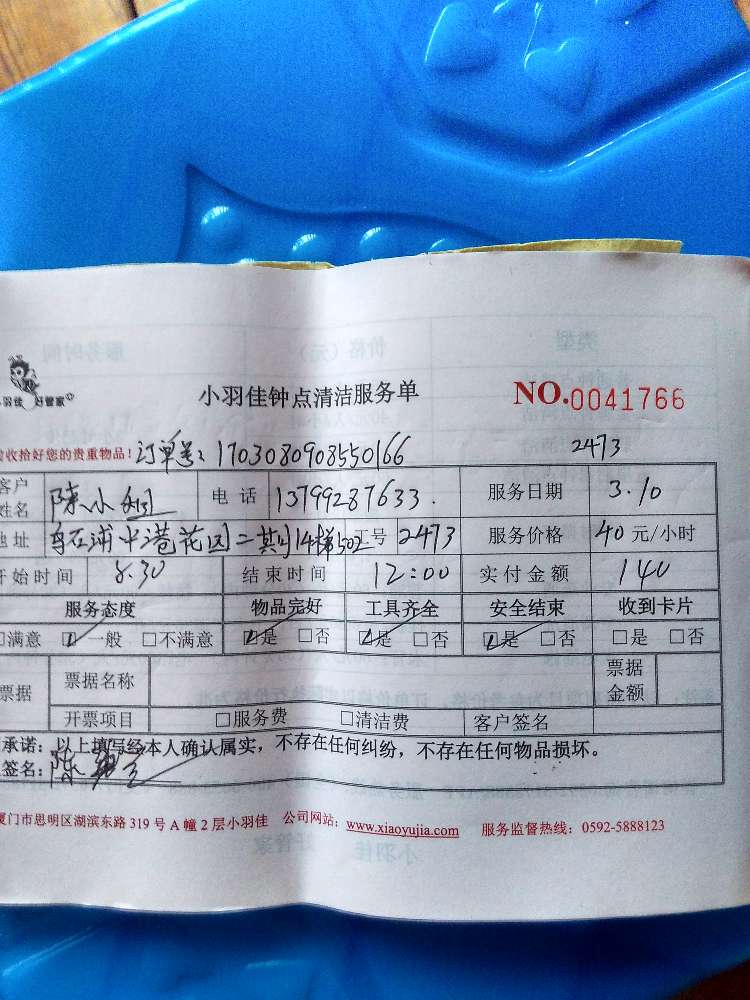 小羽佳 好管家
小羽佳钟点清洁服务单 NO.0041766
收拾好您的贵重物品！订单号：1703080908550166 2473
客户姓名 陈小姐 电话 13799287633. 服务日期 3.10
地址 乌石浦中港花园二期14梯502 工号 2473 服务价格 40元/小时
开始时间 8.30 结束时间 12:00 实付金额 140
服务态度 物品完好 工具齐全 安全结束 收到卡片
□满意 □一般 □不满意 □是 □否 □是 □否 □是 □否 □是 □否
票据 票据名称 票据金额
开票项目 □服务费 □清洁费 客户签名
承诺：以上填写经本人确认属实，不存在任何纠纷，不存在任何物品损坏。
签名：陈
厦门市思明区湖滨东路319号A幢2层小羽佳 公司网站：www.xiaoyujia.com 服务监督热线：0592-5888123